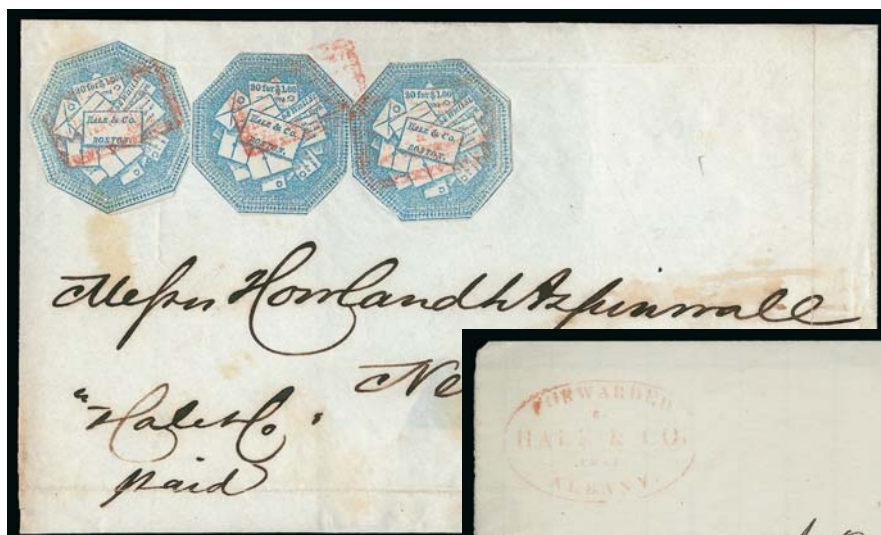 20 for $1.00
HALE & Co.
BOSTON.
20 for $1.00
HALE & Co.
BOSTON.
20 for $1.00
HALE & Co.
BOSTON.
Messrs Howland & Aspinwall
Ne
"Hale & Co"
paid
FORWARDED
HALE & CO.
ALBANY